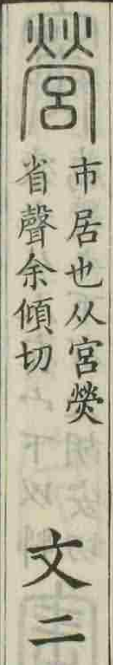 營
帀居也从宮熒
省聲余傾切
文二